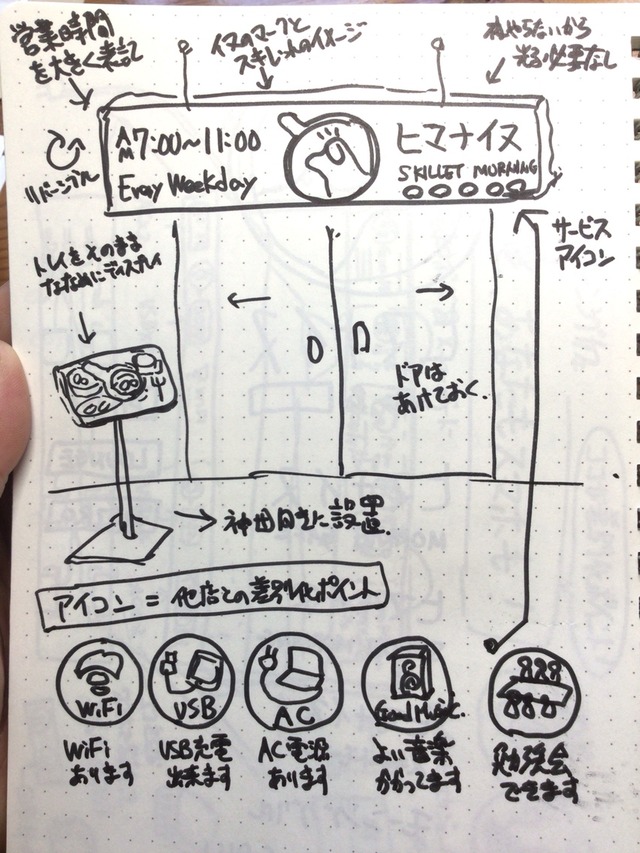 営業時間
を大きく表記
イヌのマークと
スキレットのイメージ
夜やらないから
光る必要なし
リバーシブル
AM7:00~11:00
Evray Weekday
ヒマナイヌ
SKILLET MORNING
サービス
アイコン
トレイをそのまま
ななめにディスプレイ
ドアは
あけておく.
神田向きに設置.
アイコン = 他店との差別化ポイント
WiFi
USB
AC
Good Music.
WiFi
あります
USB充電
出来ます
AC電源
あります
よい音楽
かかってます
勉強会
できます